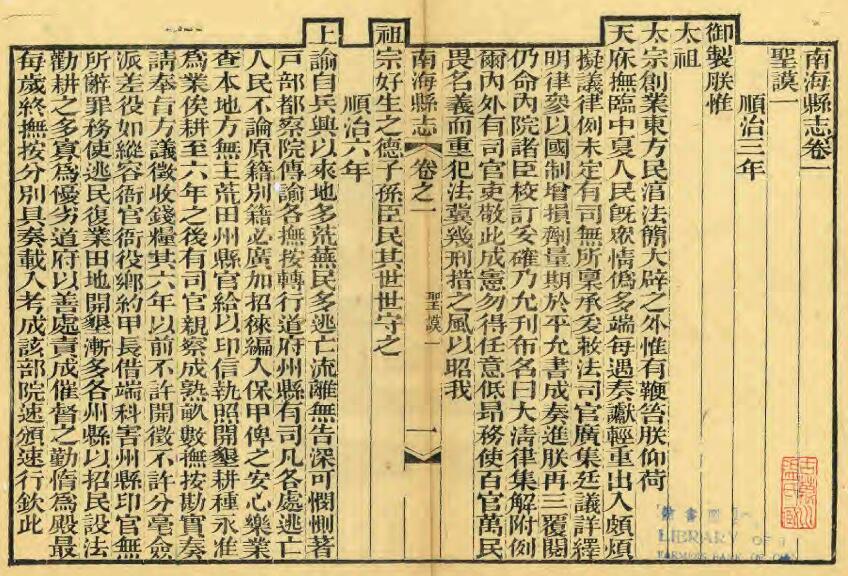 南海縣志卷一
聖謨一
順治三年
御製朕惟
太祖
太宗創業東方民湻法簡大辟之外惟有鞭笞朕仰荷
天庥撫臨中夏人民旣眾情僞多端每遇奏讞輕重出入頗煩
擬議律例未定有司無所稟承爰敕法司官廣集廷議詳繹
明律參以國制增損劑量期於平允書成奏進朕再三覆閱
仍命內院諸臣校訂妥確乃允刊布名曰大清律集解附例
爾內外有司官吏敬此成憲勿得任意低昂務使百官萬民
畏名義而重犯法冀幾刑措之風以昭我
南海縣志
卷之一
聖謨一
一
祖宗好生之德子孫臣民其世世守之
順治六年
上諭自兵興以來地多荒蕪民多逃亡流離無告深可憫惻著
戸部都察院傳諭各撫按轉行道府州縣有司凡各處逃亡
人民不論原籍別籍必廣加招徠編入保甲俾之安心樂業
查本地方無主荒田州縣官給以印信執照開墾耕種永准
爲業俟耕至六年之後有司官親察成熟畝數撫按勘實奏
請奉旨方議徵收錢糧其六年以前不許開徵不許分毫僉
派差役如縱容衙官衙役鄉約甲長借端科害州縣印官無
所辭罪務使逃民復業田地開墾漸多各州縣以招民設法
勸耕之多寡爲優劣道府以善處責成催督之勤惰爲殿最
每歲終撫按分別具奏載入考成該部院速頒速行欽此
LIBRARY OF